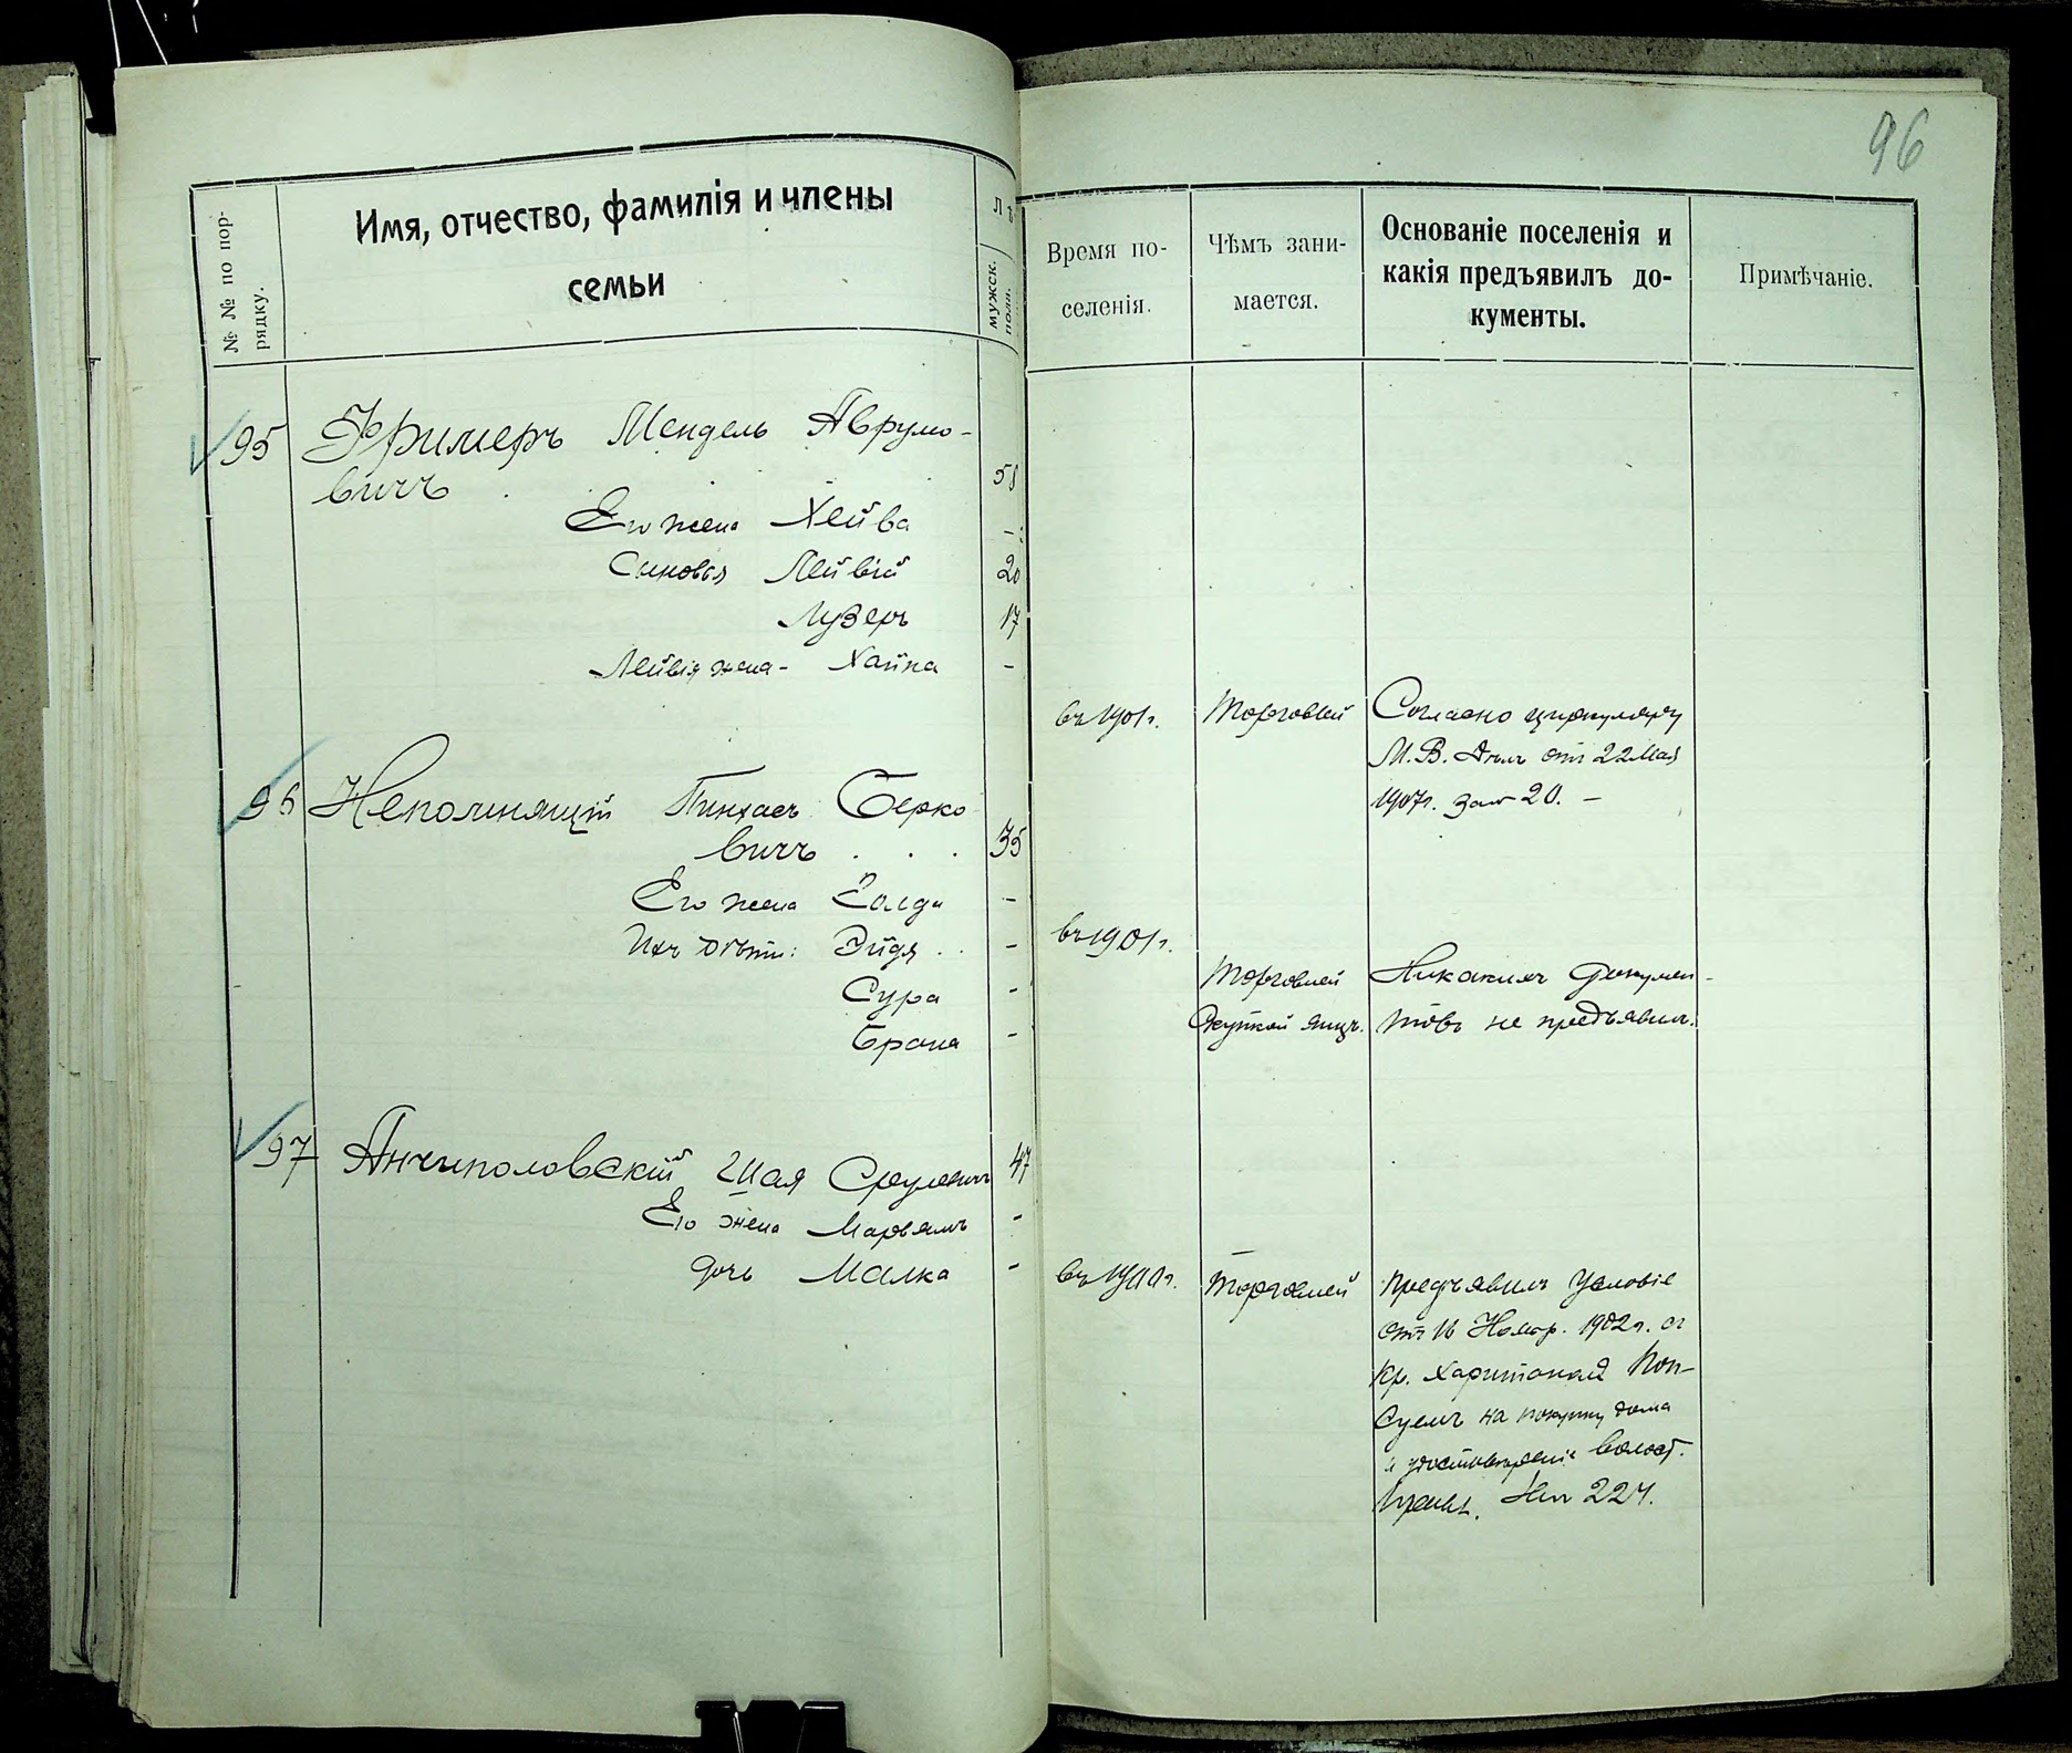 96
№ № по пор-
рядку.
Имя, отчество, фамилія и члены
семьи
Лѣ
мужск.
пола.
Время по-
селенія.
Чѣмъ зани-
мается.
Основаніе поселенія и
какія предъявилъ до-
кументы.
Примѣчаніе.
95 Фримеръ Мендель Аврумо-
вичъ 58
Его жена Хейва -
Сыновья Лейвій 20
Лузеръ 17
Лейвія жена - Хайка -
въ 1901г. Торговлей Согласно циркуляру
М. В. Дѣлъ отъ 22 Мая
1907г. за № 20. -
96 Непомнящій Пинхасъ Берко
вичъ . . . 35
Его жена Голда -
Ихъ дѣти: Эйдя . . -
Сура -
Брана -
въ 1901г.
Торговлей Никакихъ докумен-
скупкой яицъ. товъ не предъявилъ.
97 Антиполовскій Шая Срулевичъ 47
Его жена Марьямъ -
дочь Малка -
въ 1900г. Торговлей Предъявилъ условіе
отъ 16 1902г. съ
Кр. Харитоном Коп-
на покупку дома
и удостовѣреніе Волост.
Правл. № 224.